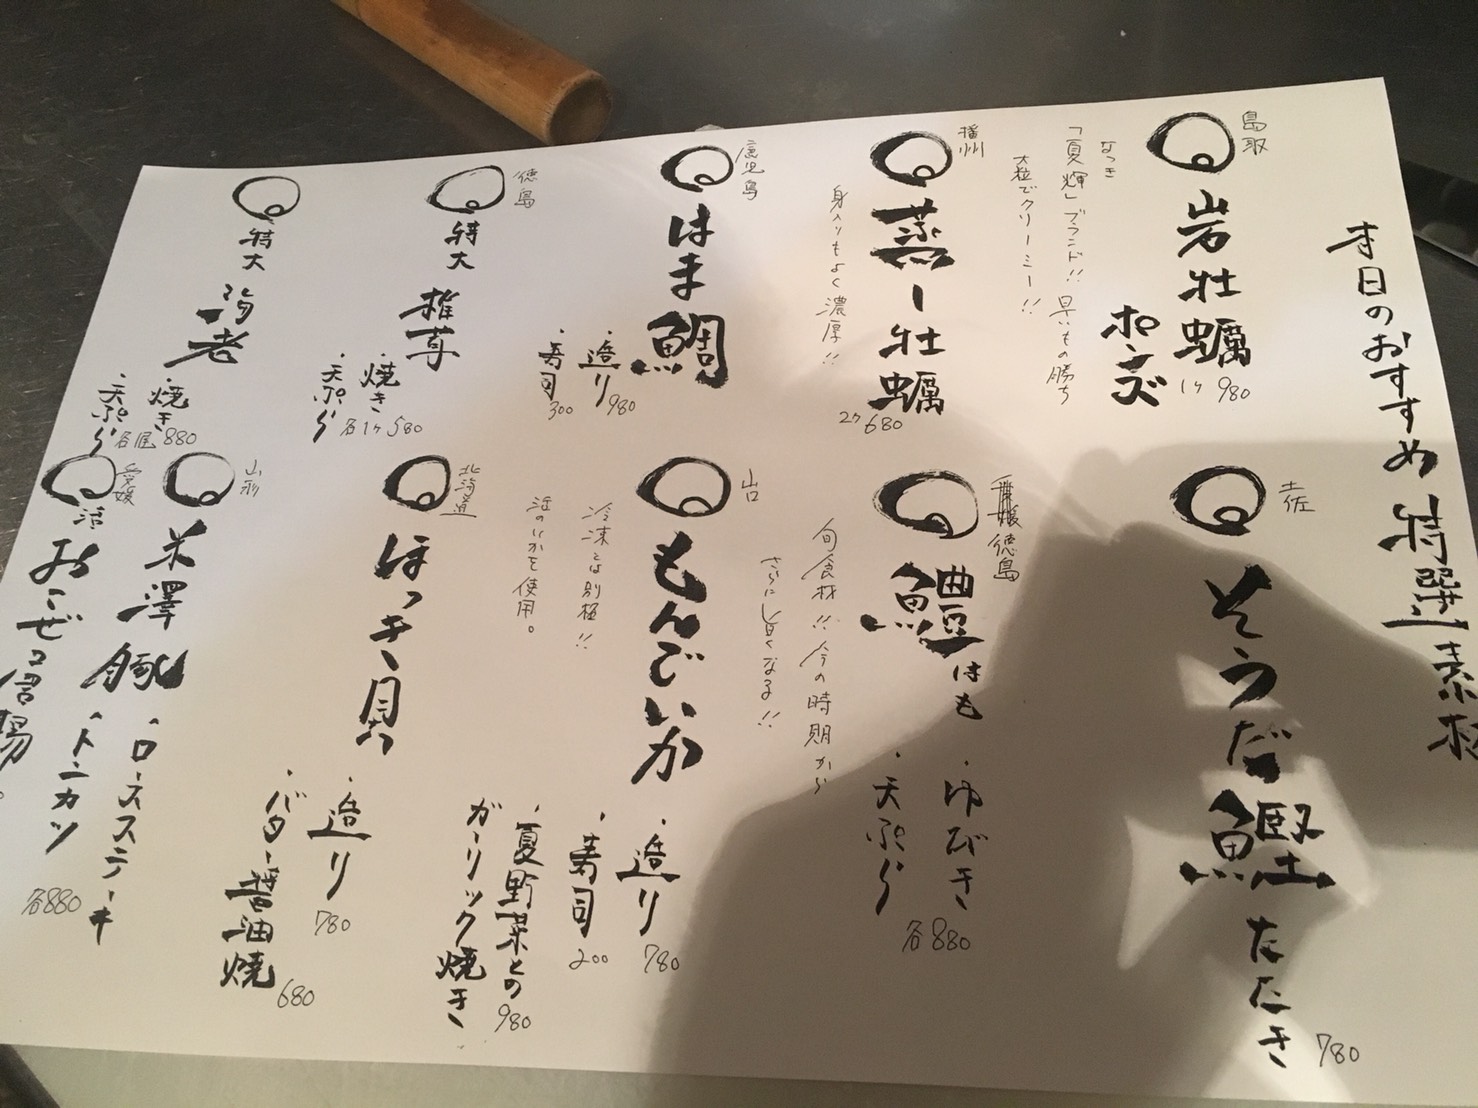 本日のおすすめ 特選素材
鳥取
岩牡蠣
ポンズ
1ケ 980
なつき
「夏輝」ブランド!! 早いもの勝ち
大粒でクリーミー!!
播州
蒸し牡蠣
2ケ 680
身入りもよく濃厚!!
鹿児島
はま鯛
・造り 980
・寿司 300
徳島
特大 椎茸
・焼き
・天ぷら
各1ケ 580
特大 海老
・焼き
・天ぷら
各尾 880
土佐
そうだ鰹 たたき
780
徳島
鱧 はも
・ゆびき
・天ぷら
各880
旬食材!! 今の時期から
さらに良くなる!!
山口
もんでいか
・造り 780
・寿司 200
・夏野菜との
ガーリック焼き 980
冷凍とは別極!!
活のいかを使用。
北海道
ほっき貝
・造り 780
・バター醤油焼 680
山形
米澤豚
・ロースステーキ
・トンカツ
各880
愛媛
活 おこぜ